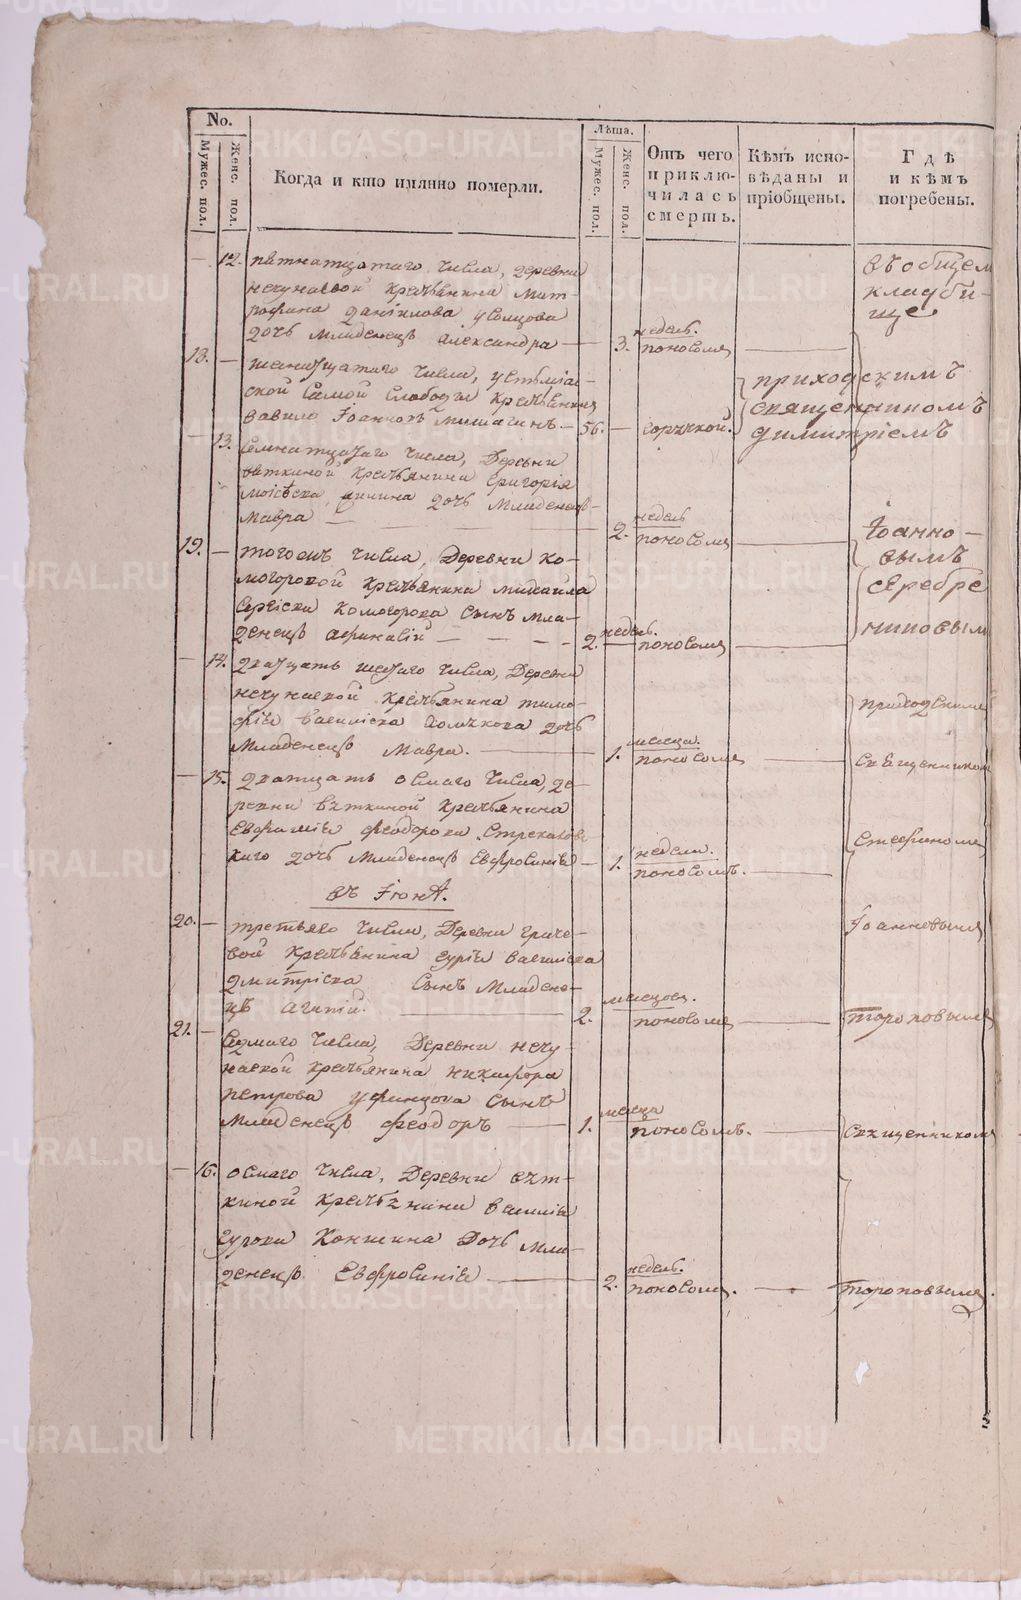 No.
Мужес. пол.
Женс. пол.
Когда и кто имянно померли.
Лѣта.
Мужес. пол.
Женс. пол.
Отъ чего
приклю-
чилась
смерть.
Кѣмъ испо-
вѣданы и
пріобщены.
Гдѣ
и кѣмъ
погребены.
12. пятнатцатаго числа, деревни
нечунаевой крестьянина Мит-
рофана данилова
дочь младенецъ александра — 3. недель. поносомъ
въ общем
кладби-
ще
18. числа,
ской самой слободы крестьянинъ
вавило Іоанновъ — 56. — горячкой.
приходскимъ
священникомъ
димитріемъ
13. семнатцатаго числа, деревни
вяткиной крестьянина григорія
дочь младенецъ
Мавра — 2. недель поносомъ
Іоанно-
вымъ
серебре
никовым
19. — тогожъ числа, деревни ко-
могоровой крестьянина михайла
сергіева комогорова сынъ мла-
денецъ афанасій — 2. недель. поносомъ
14. двадцать шестаго числа, деревни
нечунаевой крестьянина тимо-
фея василіева дочь
младенецъ Мавра. — 1. месяца. поносомъ
приходскимъ
священникомъ
15. двадцать осмаго числа, де-
ревни вяткиной крестьянина
феодорова стрекалов
каго дочь младенецъ евфросинія — 1. недели. поносомъ.
стефаномъ
въ Іюнѣ.
20. — третьяго числа, деревни граче-
вой крестьянина гурія василіева
дмитріева сынъ младене-
цъ — 2. месяцов. поносомъ
Іоанновымъ
тороповымъ
21. — седмаго числа, деревни нечу-
наевой крестьянина никифора
петрова уфинцова сынъ
младенецъ феодоръ — 1. месяца поносомъ.
священникомъ
16. осмаго числа, деревни вят-
киной крестьянина василія
гурова Коншина дочь мла-
денецъ Евфросинія — 2. недель. поносомъ.
тороповымъ.
METRIKI.GASO-URAL.RU